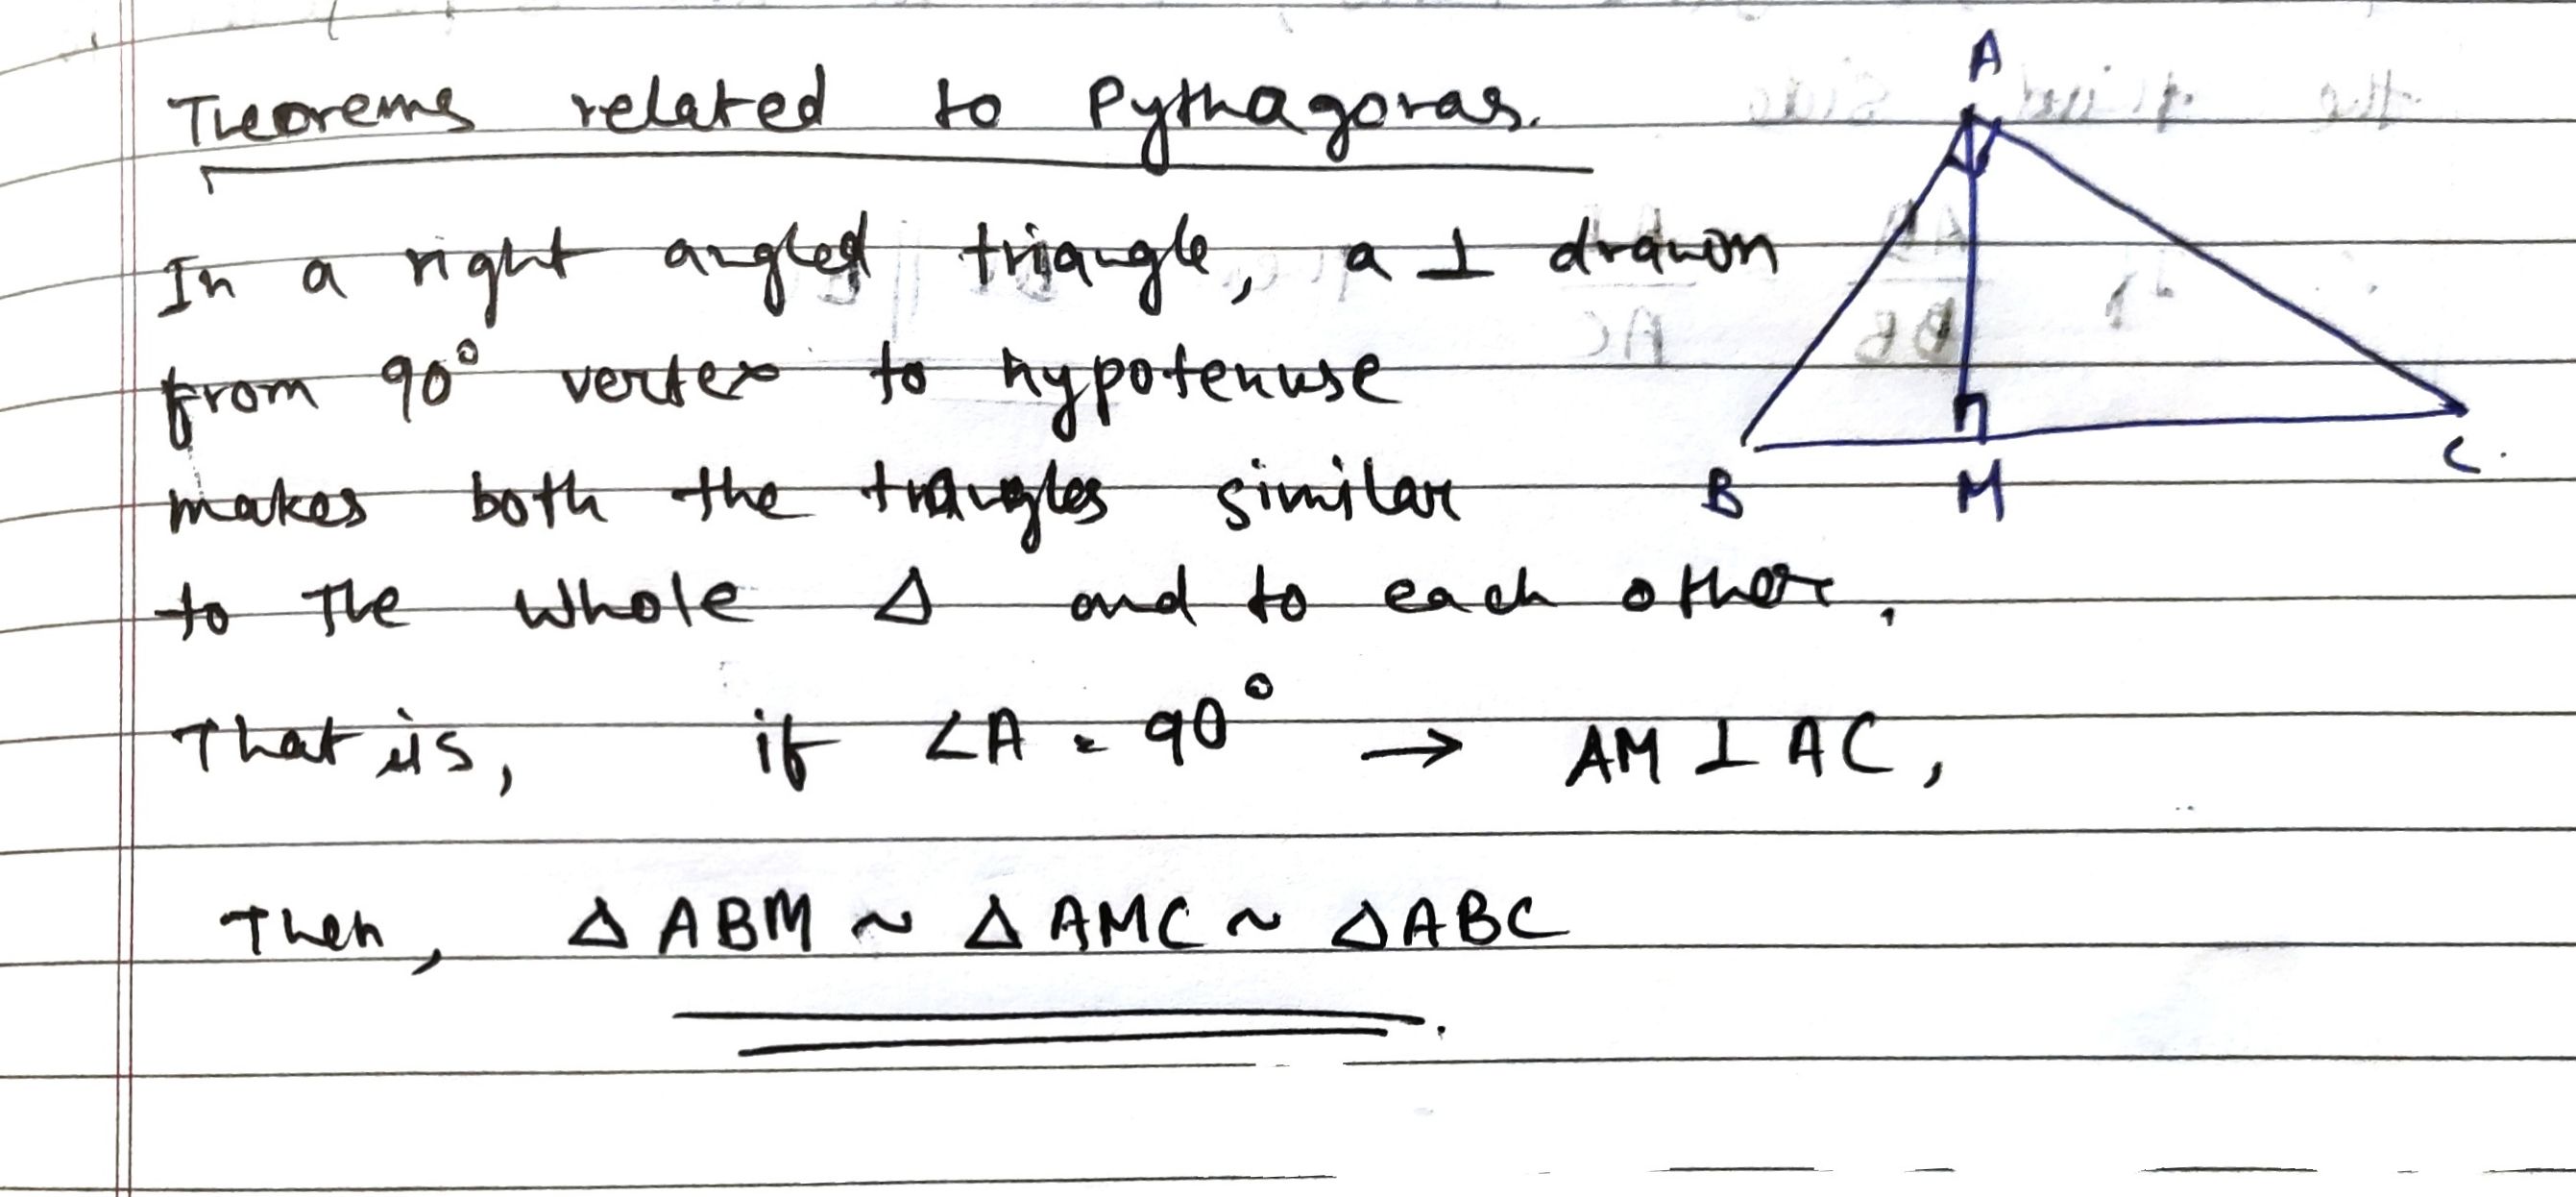 Theorems related to Pythagoras.
A
In a right angled triangle, a ⊥ drawon
from 90° vertex to hypotenuse
makes both the traingles similar
B M C.
to The whole Δ and to each other.
That is, if ∠A = 90° → AM ⊥ AC,
Then, Δ ABM ~ Δ AMC ~ Δ ABC